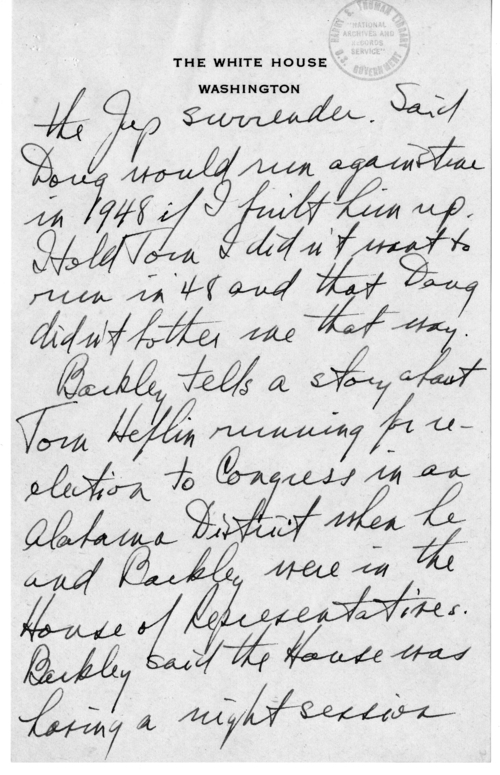 HARRY S. TRUMAN LIBRARY
"NATIONAL
ARCHIVES AND
RECORDS
SERVICE"
U.S. GOVERNMENT
THE WHITE HOUSE
WASHINGTON
the Jap surrender. Said
Doug would run against me
in 1948 if I built him up.
I told Tom I didn't want to
run in '48 and that Doug
didn't bother me that way.
Barkley tells a story about
Tom Heflin running for re-
election to Congress in an
Alabama District when he
and Barkley were in the
House of Representatives.
Barkley said the House was
having a night session